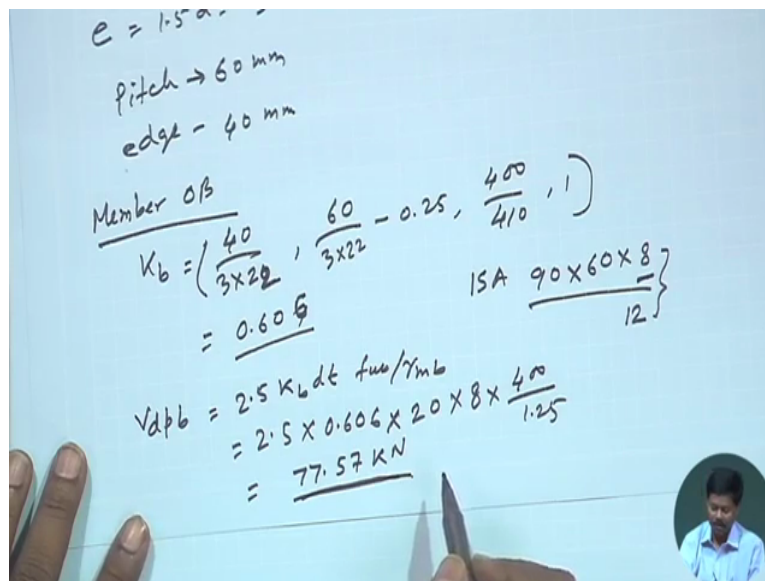 e = 1.5
Pitch → 60 mm
edge - 40 mm
Member OB
Kb = ( 40/3×22 , 60/3×22 - 0.25, 400/410 , 1 )
= 0.606
ISA 90×60×8
12 }
Vdpb = 2.5 Kb dt fub/γmb
= 2.5 × 0.606 × 20 × 8 × 400/1.25
= 77.57 KN